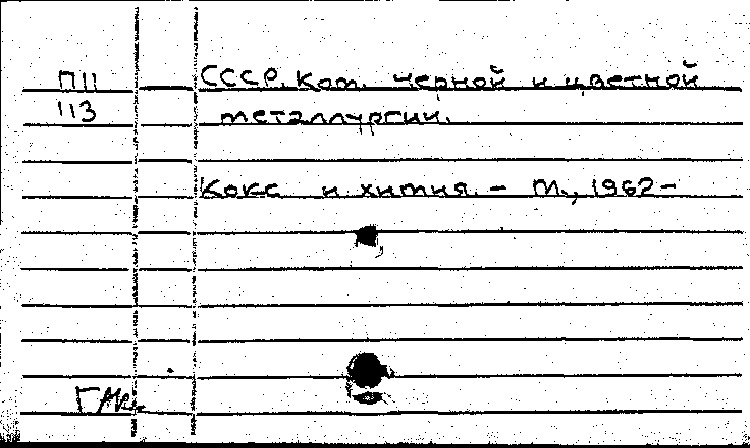 П11 СССР. Ком. черной и цветной
113 металлургии.
Кокс и химия. - М., 1962-